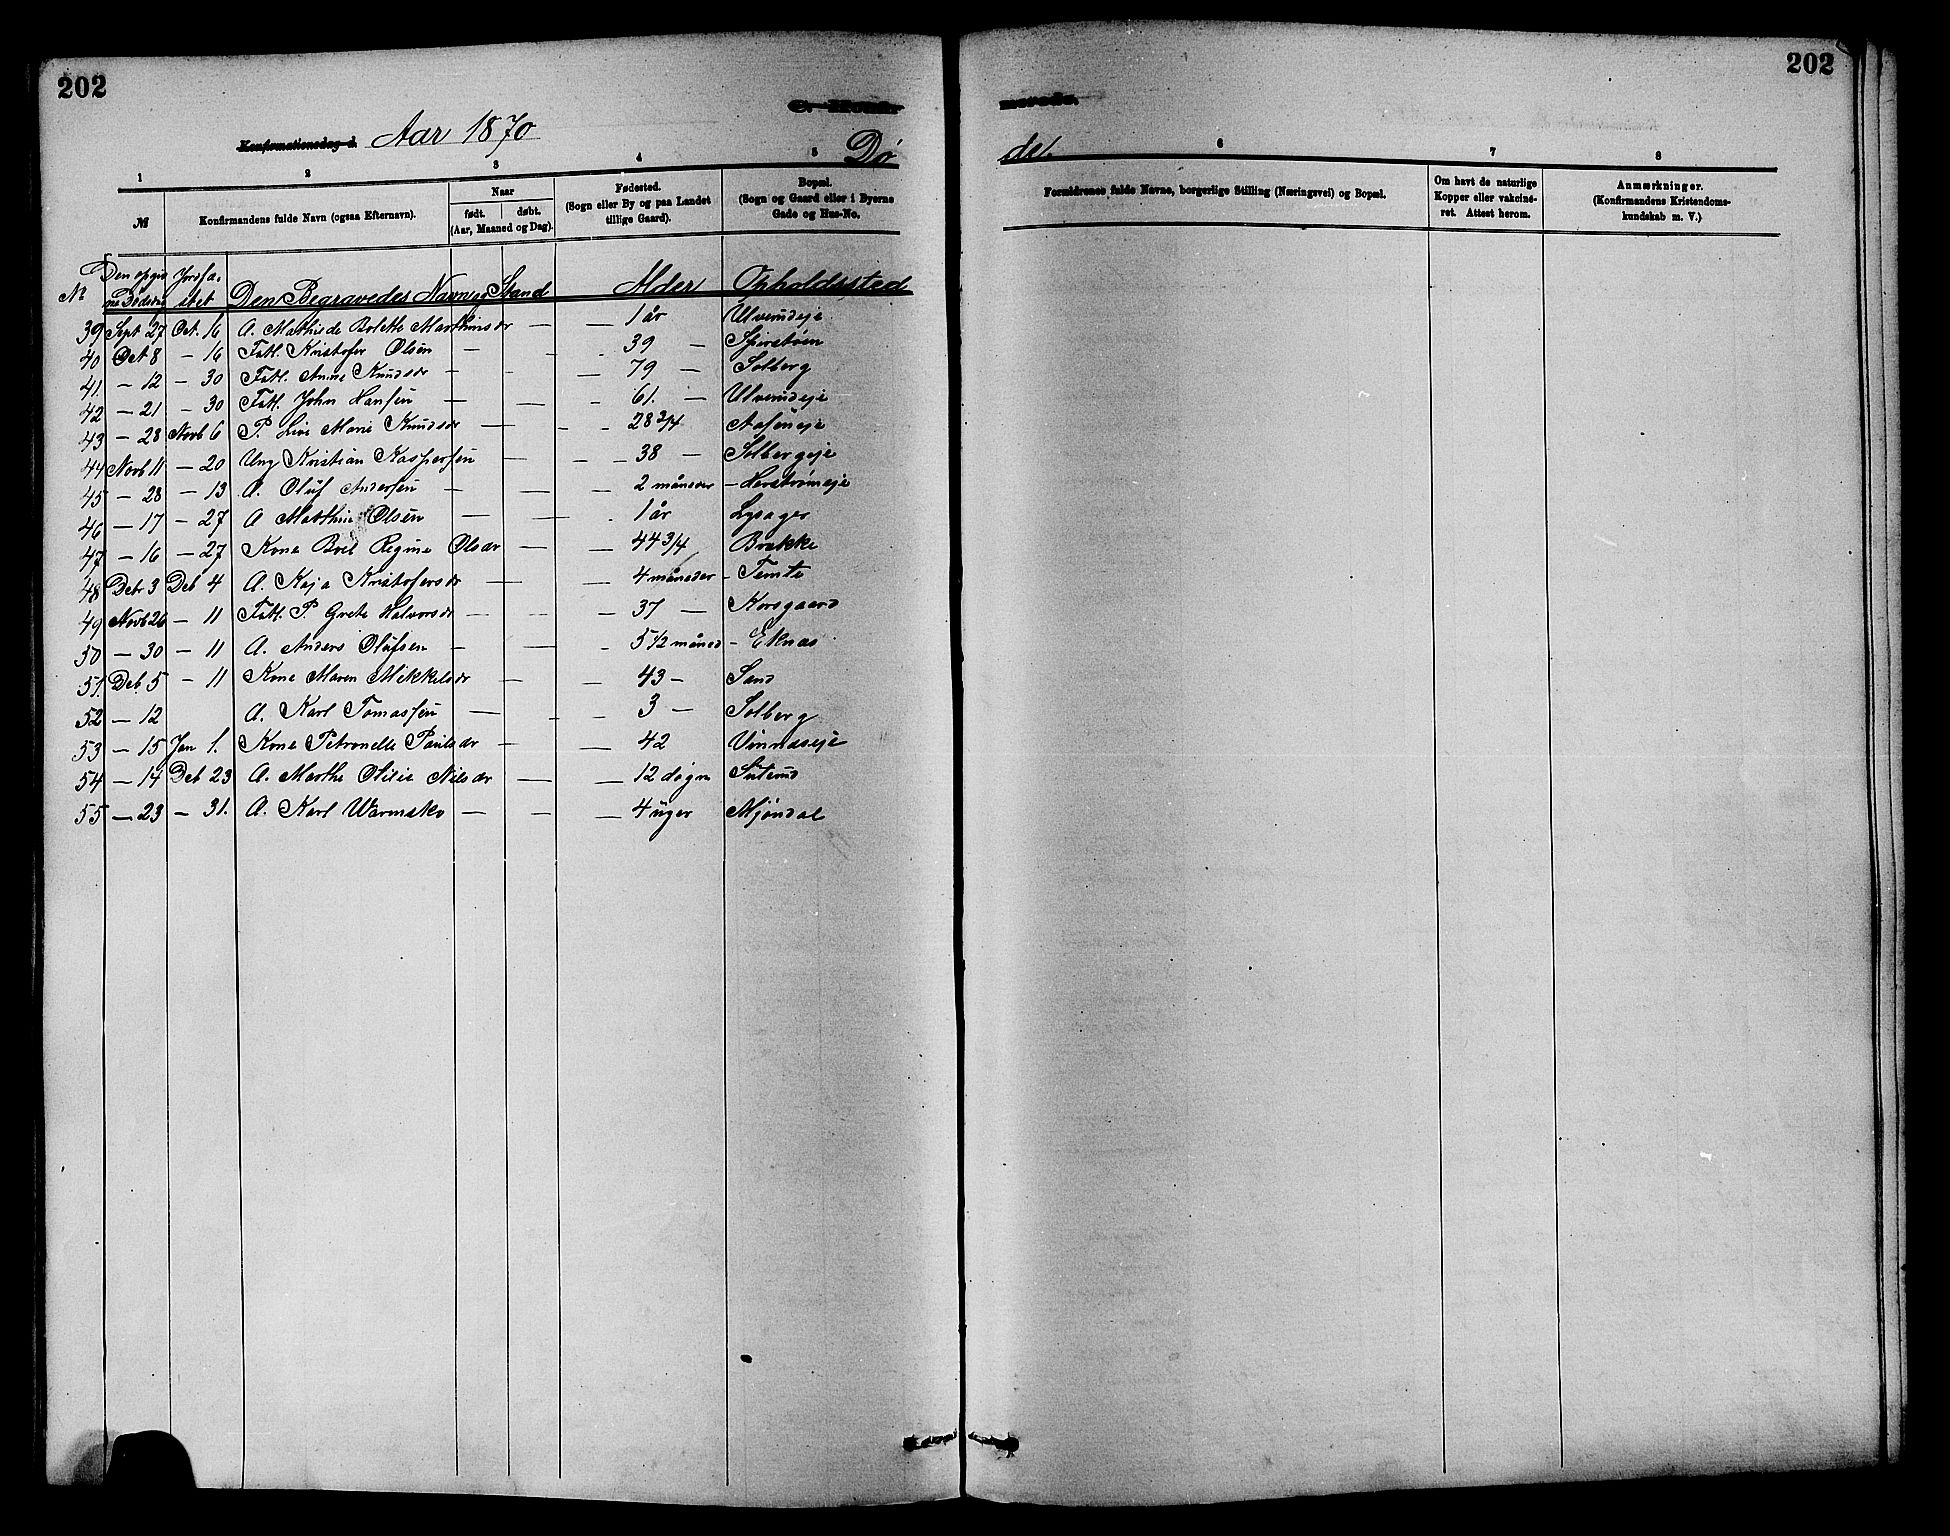 202
202
Konfirmationsdag d. Aar 1870
Døde.
1 2 3 4 5 6 7 8
№
Konfirmandens fulde Navn (ogsaa Efternavn).
Naar
født. døbt.
(Aar, Maaned og Dag).
Fødested.
(Sogn eller By og paa Landet
tillige Gaard).
Bopæl.
(Sogn og Gaard eller i Byerne
Gade og Hus-No.
Formldrenes fulde Navne, borgerlige Stilling (Næringsvei) og Bopæl.
Om havt de naturlige
Kopper eller vakcine-
ret. Attest herom.
Anmærkninger.
(Konfirmandens Kristendoms-
kundskab m. V.)
№ Den opgivne Dødsdag Jordfæstet Den Begravedes Navn og Stand Alder Opholdssted
39 Sept 27 Oct. 16 A. Mathilde Bolette Marthinsdr — — 1 år Ulverudeje
40 Oct 8 — 16 Fatl. Kristofer Olsen — - 39 — Spirstøen
41. — 12 — 30 Fatl. Anne Knudsdr — - — 79 — Solberg
42 — 21 — 30 Fatl. John Hansen — — - 61. — Ulverudeje
43 — 28 Novb 6 P. Live Marie Knudsdr — - - 28 3/4 Aaføneje
44 Novb 11 — 20 Ung Kristian Kaspersen — — 38 — Solbergeje
45 — 28 — 13 A. Oluf Andersen — — — 2 måneder — Herstrømeje
46 — 17 — 27 A Matthie Olsen — — - 1 år Lysager
47 — 16 — 27 Kone Boel Regine Olsdr — — 44 3/4 Brekke
48 Debr 3 Deb 4 A. Kaja Kristofersdr — — — 4 måneder — Temte
49 Novb 26 — 11 Fatl. P. Grete Halvorsdr — — — 37 — Korsgaard
50 — 30 — 11 A. Anders Olufsen — — - 5 1/2 måned — Eknas
51. Deb. 5 — 11 Kone Maren Mikkelsdr — — 43 — Sand
52 — 12 A. Karl Tomassen — - - 3 — Solberg
53 — 15 Jan 1. Kone Petronelle Paulsdr — — 42 Vinnaseje
54 — 14 Deb 23 A. Marthe Otilie Nilsdr — — 12 døgn Stuterud
55 — 23 — 31. A. Karl Warmsko — — — 4 uger Mjøndal